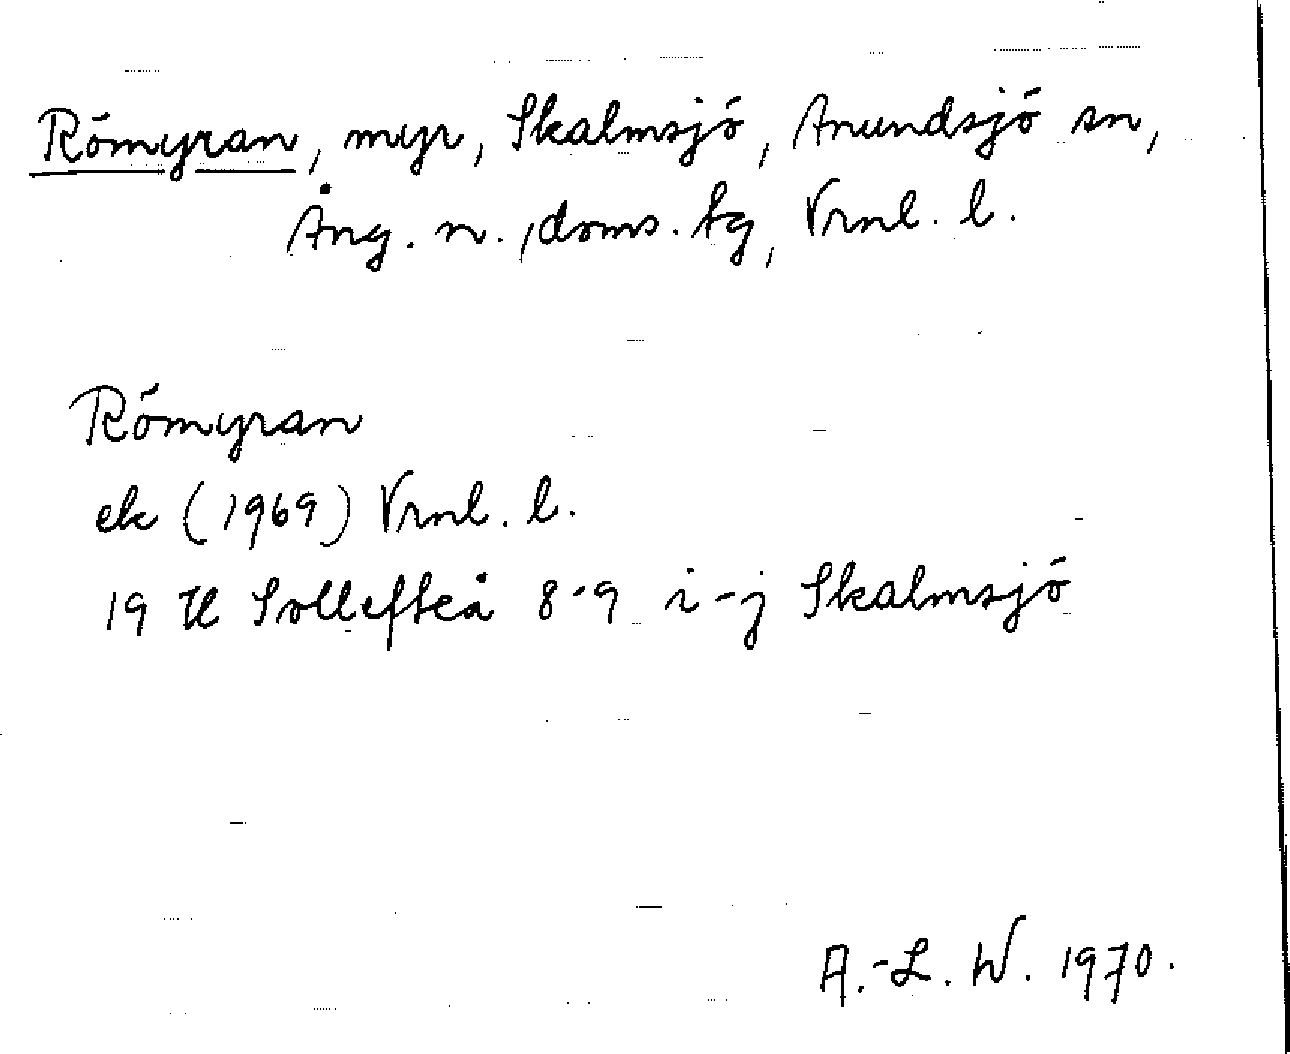 Römyran, myr, Skalmsjö, Anundsjö sn,
Ång. n., doms. tg, Vrml. l.
Römyran
ek (1969) Vrml. l.
19 H Sollefteå 8-9 i-j Skalmsjö
A.-L. W. 1970.